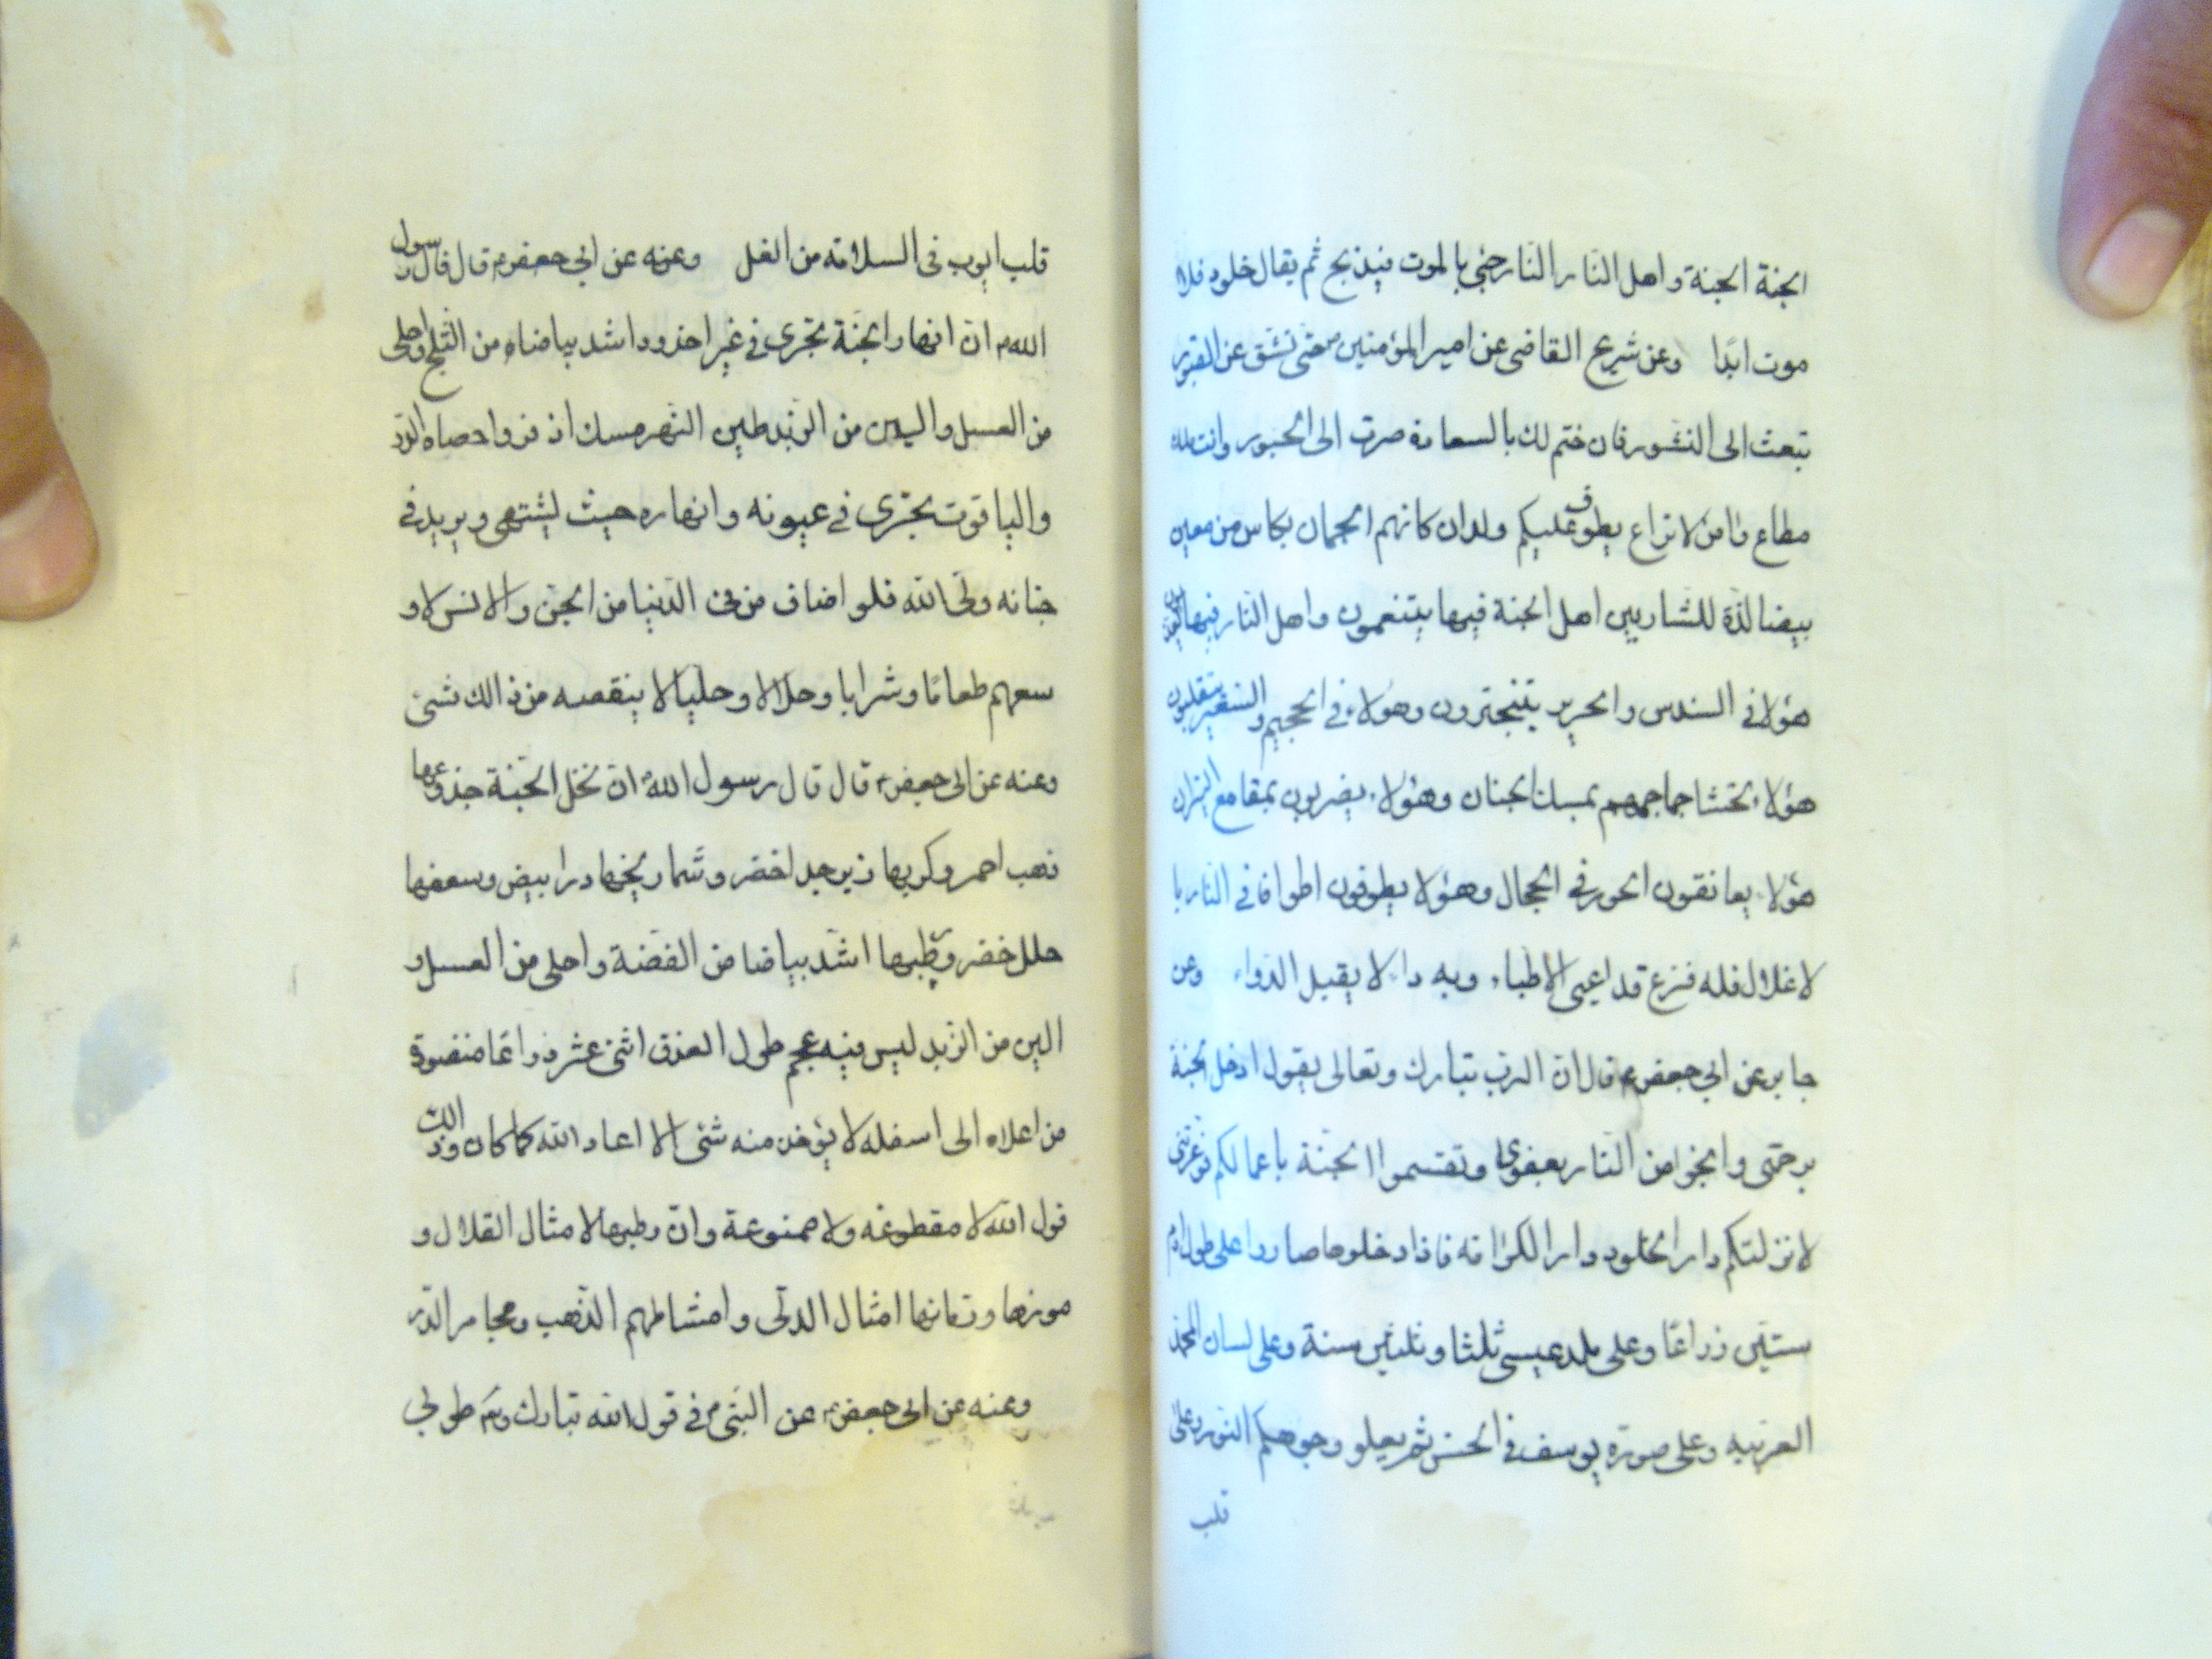 الجنة الجنة واهل النار النار جئ بالموت فيذبح ثم يقال خلود فلا
موت ابدا وعن شريح القاضى عن امير المؤمنين حتى تشق عن القبور
تبعث الى النشور فان ختم لك بالسعادة صرت الى الحبور وانت ملك
مطاع وامن لا تراع يطوف عليكم ولدان كانهم الجمان بكاس من معين
بيضا لذة للشاربين اهل الجنة فيها يتنعمون واهل النار فيها
هؤلا فى السندس والحرير يتبخترون وهؤلاء فى الجحيم والسعير يتقلبون
هؤلاء تحشا جماجمهم بمسك الجنان وهؤلاء يضربون بمقامع النيران
هؤلاء يعانقون الحور فى الحجال وهؤلا يطوفون اطواقا فى النار با
لاغلال فله فزع قد اعيى الاطباء وبه داء لا يقبل الدواء وعن
جابر عن ابى جعفر ع قال ان الرب تبارك وتعالى يقول ادخل الجنة
برحمتى وانجوا من النار بعفوى وتقسموا الجنة باعمالكم فوعزتى
لانزلنكم دار الخلود دار الكرامة فاذا دخلوها صاروا على طول ادم
ستين ذراعا وعلى ملد عيسى ثلثا وثلثين سنة وعلى لسان المحمد
العربيه وعلى صورة يوسف فى الحسن ثم يعلو وجوهكم النور وعلى
قلب
قلب ايوب فى السلامة من الغل وعنه عن ابى جعفر ع قال قال رسول
الله ان انهار الجنة تجرى فى غير اخدود اشد بياضاء من الثلج واحلى
من العسل والين من الزبد طين النهر مسك اذفر وا حصاه الدر
والياقوت تجرى فى عيونه وانهاره حيث يشتهى ويريد فى
جنانه ولى الله فلو اضاف من فى الدنيا من الجن والانس لاو
سعهم طعاما وشرابا وحللا وحليا لا ينقصه من ذالك شئ
وعنه عن ابى جعفر ع قال قال رسول الله ان نخل الجنة جذوعها
ذهب احمر وكربها زبرجد اخضر وشماريخها در ابيض وسعفها
حلل خضر ورطبها اشد بياضا من الفضة واحلى من العسل و
الين من الزبد ليس فيه عجم طول العذق اثنى عشر ذراعا منضودة
من اعلاه الى اسفله لا يؤخذ منه شئ الا اعاد الله كما كان وذالك
قول الله لا مقطوعه ولا ممنوعة وان رطبها لامثال القلال و
موزها ورمانها امثال الدلى وامشاطهم الذهب ومجامر الدر
وعنه عن ابى جعفر ع عن النبى فى قول الله تبارك وتع طوبى